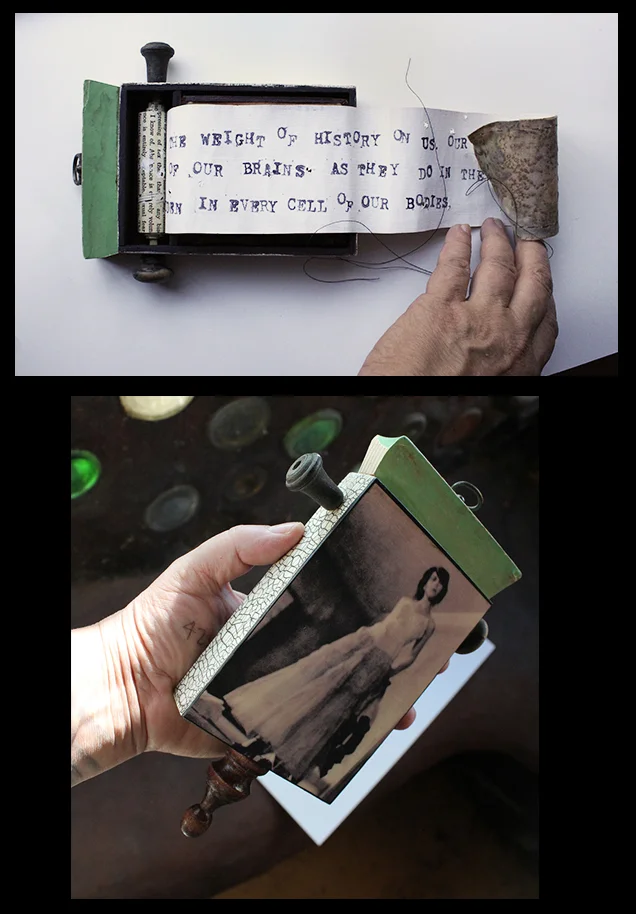 HE WEIGHT OF HISTORY ON US, OUR
OF OUR BRAINS AS THEY DO IN THE
RN IN EVERY CELL OF OUR BODIES.
42